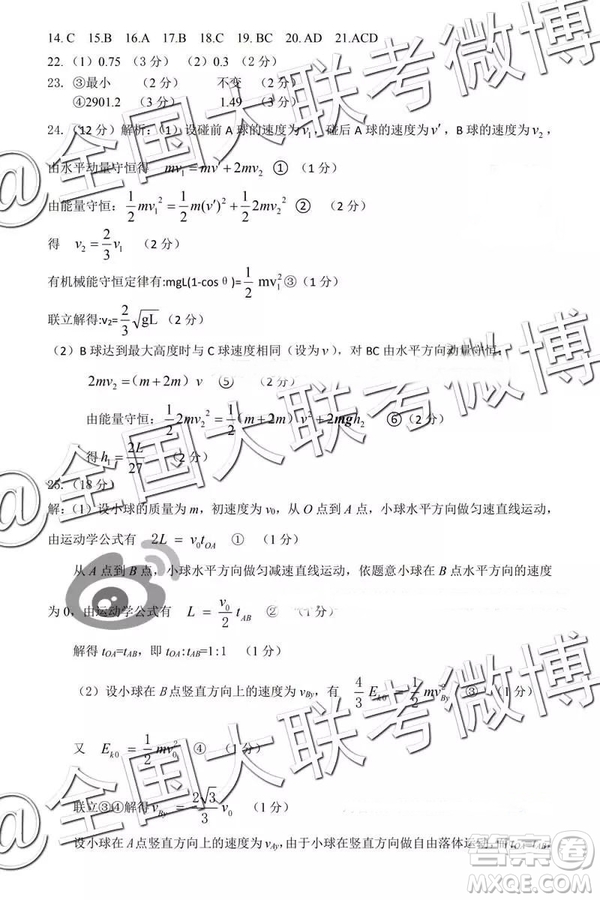 14. C 15.B 16.A 17.B 18.C 19. BC 20. AD 21.ACD
22. (1) 0.75 (3分) (2) 0.3 (2分)
23. ③最小 (2分) 不变 (2分)
④2901.2 (3分) 1.49 (3分)
24. (12分) 解析:(1) 设碰前 A 球的速度为 v₁, 碰后 A 球的速度为 v′, B 球的速度为 v₂,
由水平动量守恒得 mv₁ = mv′ + 2mv₂ ① (1分)
由能量守恒: 1/2 mv₁² = 1/2 m(v′)² + 1/2 2mv₂² ② (2分)
得 v₂ = 2/3 v₁ (2分)
有机械能守恒定律有:mgL(1-cosθ)= 1/2 mv₁² ③(1分)
联立解得:v₂= 2/3 √gL (2分)
(2) B 球达到最大高度时与 C 球速度相同(设为 v), 对 BC 由水平方向动量守恒,
2mv₂ = (m + 2m) v ⑤ (2分)
由能量守恒: 1/2 2mv₂² = 1/2 (m + 2m) v² + 2mgh₂ ⑥ (2分)
得 h₁ = 2L/27 (2分)
25. (18分)
解:(1) 设小球的质量为 m, 初速度为 v₀, 从 O 点到 A 点, 小球水平方向做匀速直线运动,
由运动学公式有 2L = v₀t_OA ① (1分)
从 A 点到 B 点, 小球水平方向做匀减速直线运动, 依题意小球在 B 点水平方向的速度
为 0, 由运动学公式有 L = v₀/2 t_AB ② (1分)
解得 t_OA=t_AB, 即 t_OA:t_AB=1:1 (1分)
(2) 设小球在 B 点竖直方向上的速度为 v_By, 有 4/3 E_k0 = 1/2 mv_By² ③ (1分)
又 E_k0 = 1/2 mv₀² ④ (1分)
联立③④解得 v_By = 2√3/3 v₀ (1分)
设小球在 A 点竖直方向上的速度为 v_Ay, 由于小球在竖直方向做自由落体运动, 而 t_OA=t_AB,
@全国大联考微博
@全国大联考微博
@全国大联考微博
答案圈
MXQE.COM